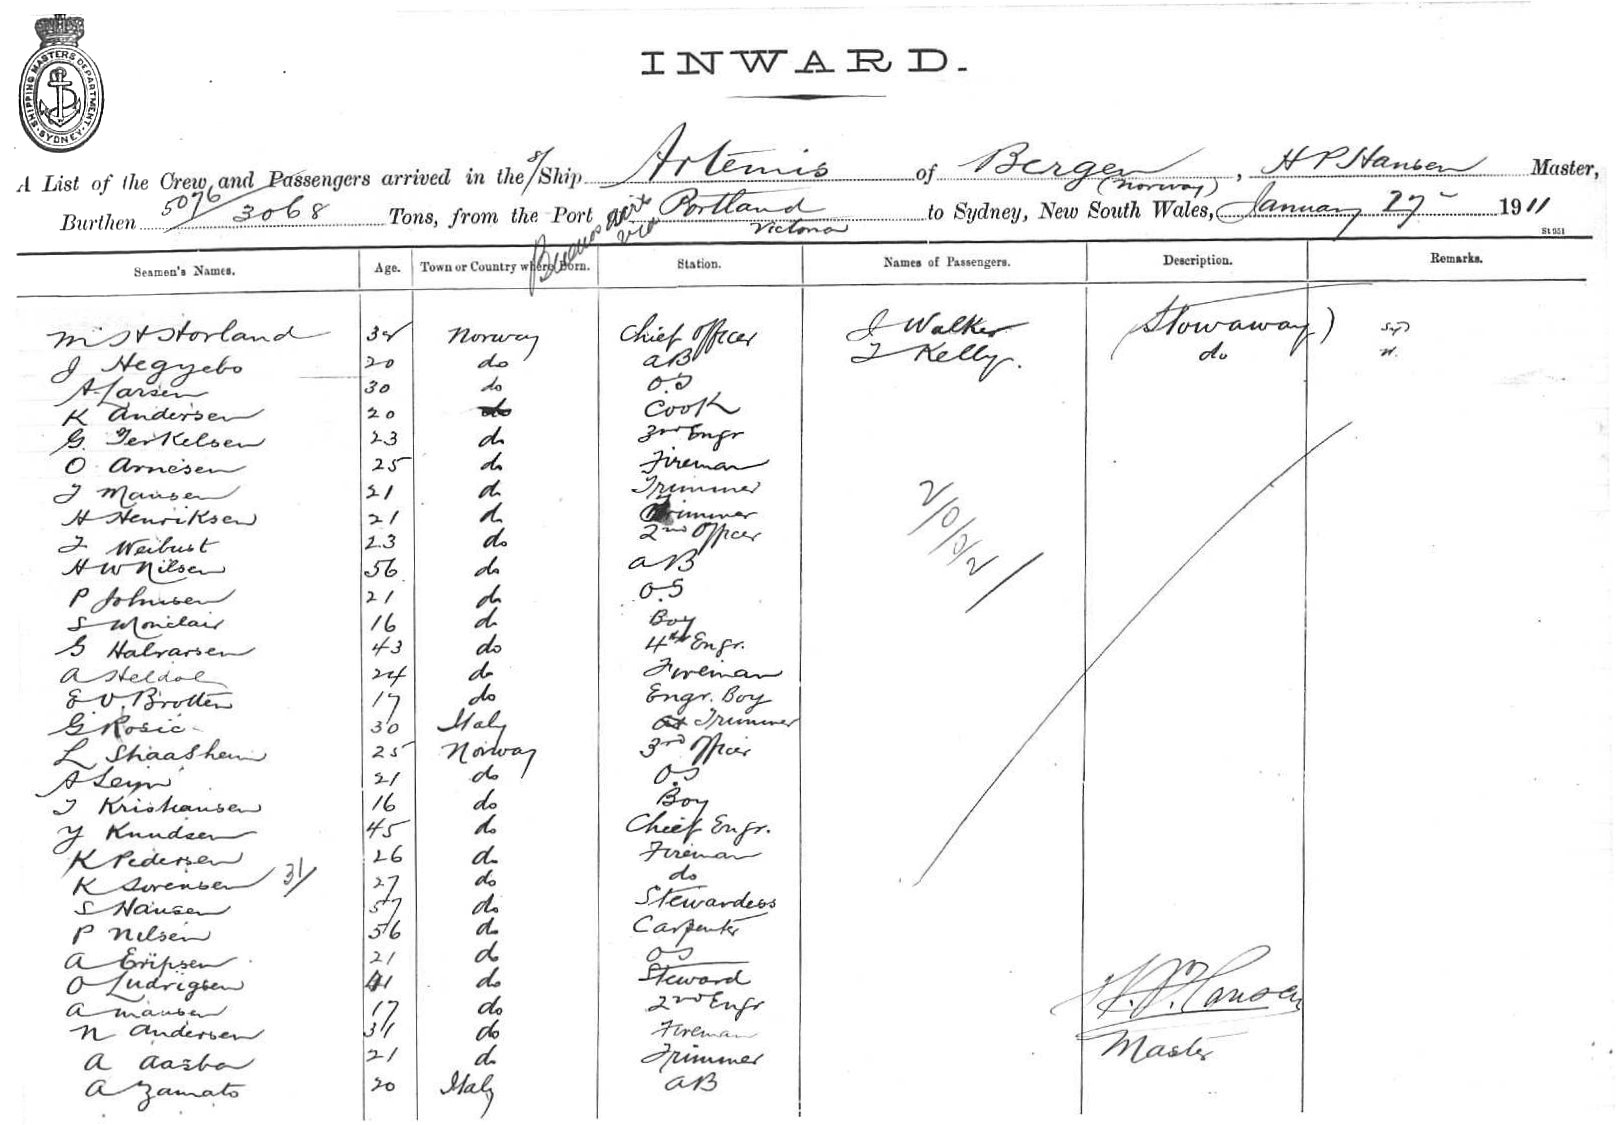 SHIPPING MASTERS DEPARTMENT
SYDNEY
INWARD.
A List of the Crew and Passengers arrived in the S/Ship Artemis of Bergen (Norway), H P Hansen Master,
Burthen 5076/3068 Tons, from the Port Buenos via Portland Victoria to Sydney, New South Wales, January 27 1911
St 951
Seamen's Names. Age. Town or Country where Born. Station. Names of Passengers. Description. Remarks.
M H Storland 38 Norway Chief Officer J Walker (Stowaway)
J Hegyebo 20 do AB T Kelly. do
A Larsen 30 do O.S
K Andersen 20 do Cook
G. Terkelsen 23 do 3rd Engr
O Arnesen 25 do Fireman
J Mansen 21 do Trimmer
H Henriksen 21 do Trimmer
J Weibust 23 do 2nd Officer
H W Nilsen 56 do AB
P Johnsen 21 do O.S
S Monclair 16 do Boy
G Halvarsen 43 do 4th Engr.
A Heldal 24 do Fireman
E V. Brotten 17 do Engr. Boy
G Rosic 30 Italy Trimmer
L Skaashem 25 Norway 3rd Officer
A 21 do O.S
J Kristiansen 16 do Boy
Y Knudsen 45 do Chief Engr.
K Pedersen 26 do Fireman
K Sorensen 31/ 27 do do
S Hansen 57 do Stewardess
P Nilsen 56 do Carpenter
A Eriksen 21 do OS
O Ludrigsen 41 do Steward
A Mansen 17 do 2nd Engr
N Andersen 31 do Fireman
A Aasbo 21 do Trimmer
A Zamato 20 Italy AB
2/0/0/2/
H. P. Hansen
Master